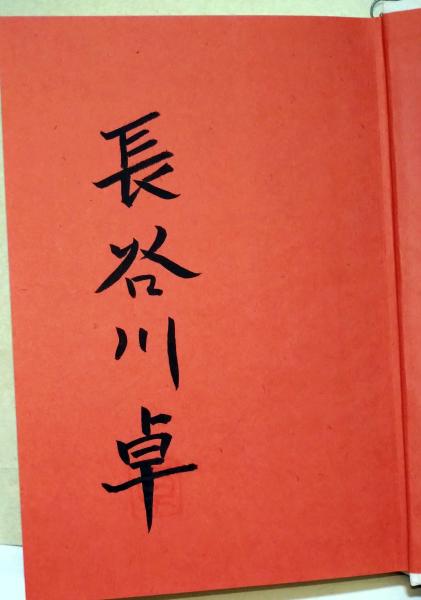 長谷川卓